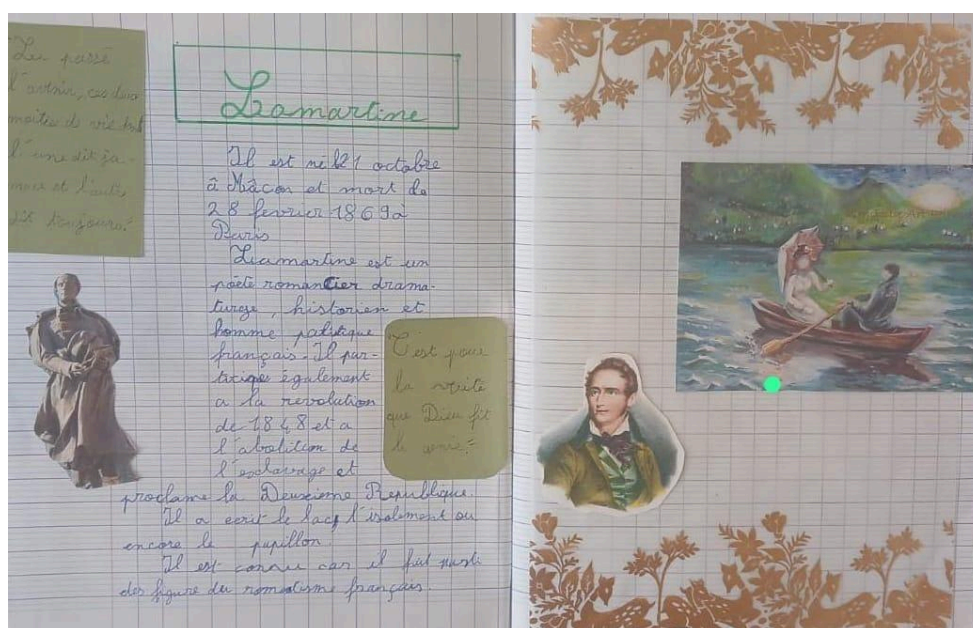 Les passé
l'avenir, ces deux
moitiés de vie dont
l'une dit ja-
mais et l'autre
dit toujours."
Lamartine
Il est né le 21 octobre
à Mâcon et mort de
28 fevrier 1869 à
Paris
Lamartine est un
poète romancier drama-
turge, historien et
homme politique
français. Il par-
ticipe également
a la revolution
de 1848 et a
l'abolition de
l'esclavage et
proclame la Deuxieme Republique.
Il a ecrit le lac, l'isolement ou
encore le papillon
Il est connu car il fait parti
des figure du romatisme français.
C'est pour
la verité
que Dieu fit
le genie."